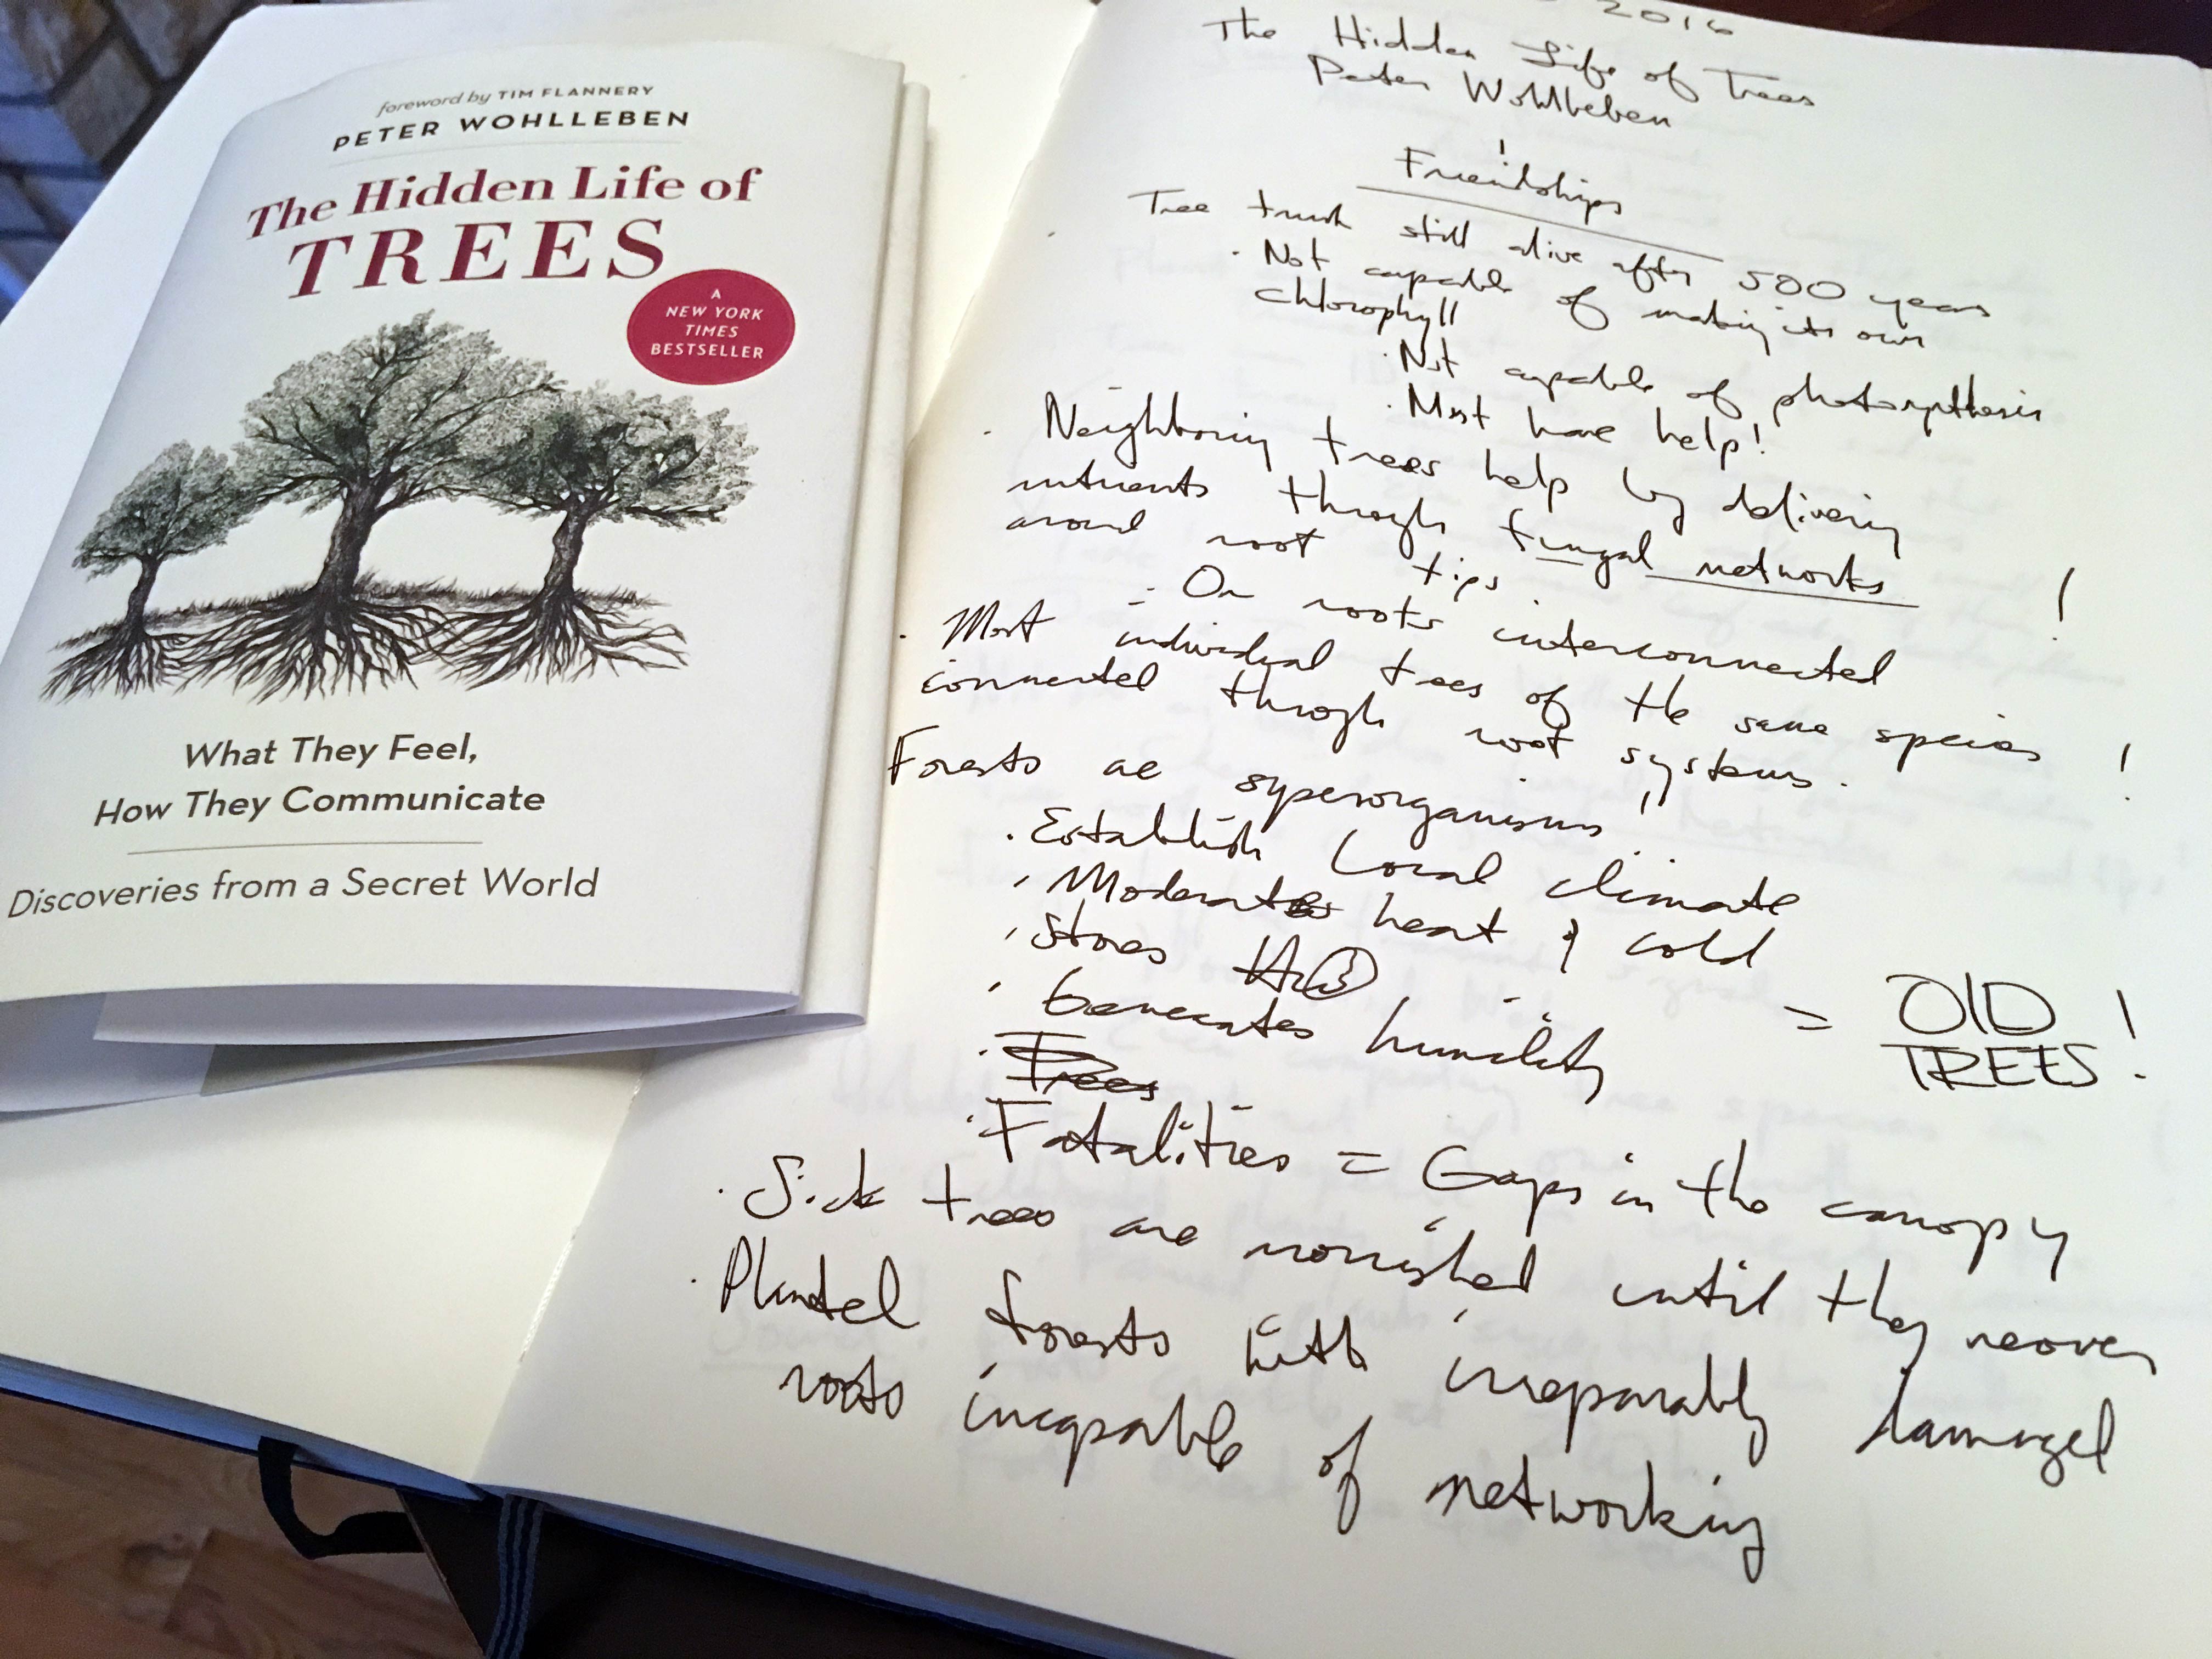 foreword by TIM FLANNERY
PETER WOHLLEBEN
The Hidden Life of
TREES
A
NEW YORK
TIMES
BESTSELLER
What They Feel,
How They Communicate
Discoveries from a Secret World
2016
The Hidden Life of Trees
Peter Wohlleben
Friendships
Tree trunk still alive after 500 years
· Not capable of making its own
chlorophyll
· Not capable of photosynthesis
· Must have help!
· Neighboring trees help by delivering
nutrients through fungal networks !
around root tips
- Or roots interconnected
· Most individual trees of the same species !
connected through root systems.
Forests are superorganisms
· Establish local climate
· Moderates heat & cold
· Stores H2O
· Generates humidity
= OLD
TREES!
· Trees
· Fatalities = Gaps in the canopy
· Sick trees are nourished until they recover
· Planted forests with irreparably damaged
roots incapable of networking